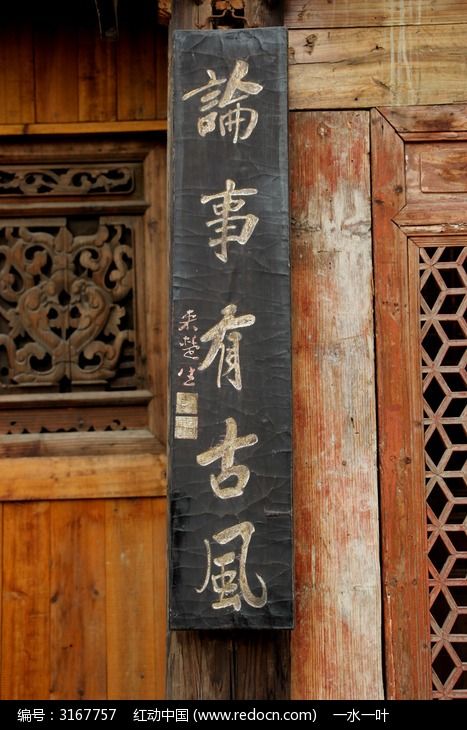 論事有古風
來楚生
编号：3167757 红动中国 (www.redocn.com) 一水一叶